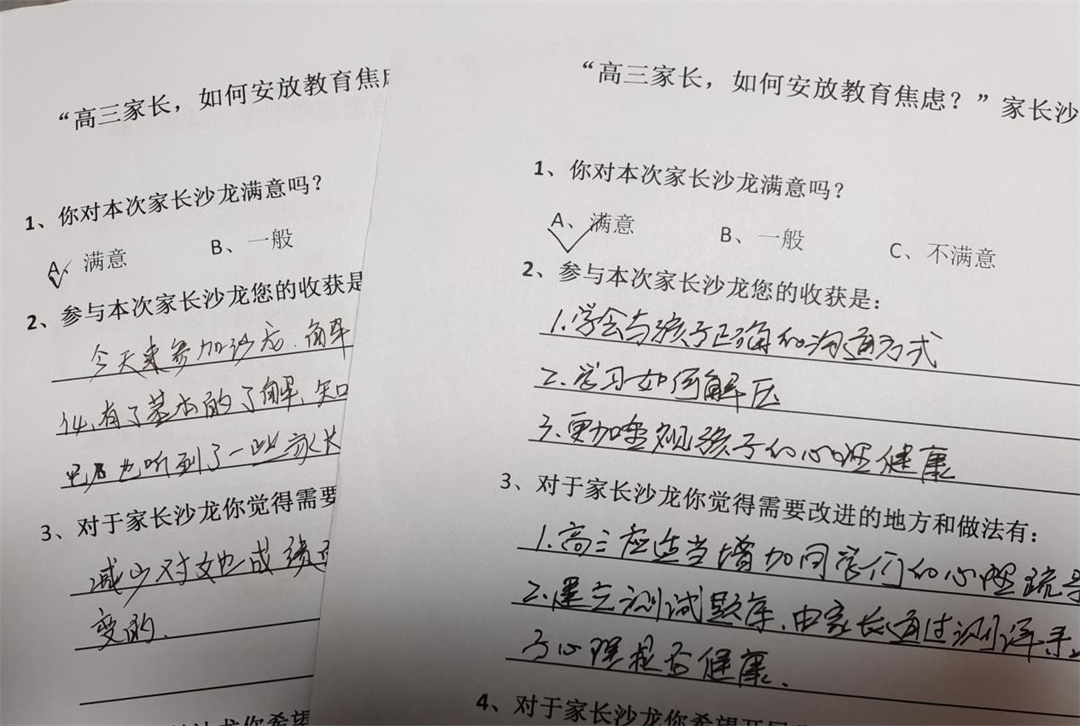 “高三家长，如何安放教育焦虑
1、你对本次家长沙龙满意吗？
A、满意 B、一般
2、参与本次家长沙龙您的收获是
今天来参加沙龙、解
化,有了基本的了解,知
也听到了一些家长
3、对于家长沙龙你觉得需要
减少对她成绩
变的.
“高三家长，如何安放教育焦虑？”家长沙
1、你对本次家长沙龙满意吗？
A、满意 B、一般 C、不满意
2、参与本次家长沙龙您的收获是：
1.学会与孩子正确的沟通方式
2.学习如何解压
3.更加重视孩子的心理健康
3、对于家长沙龙你觉得需要改进的地方和做法有：
1.高三应适当增加同学们的心理疏导
2.建立测试题库,由家长通过测译
子心理是否健康.
4、对于家长沙龙你希望开展